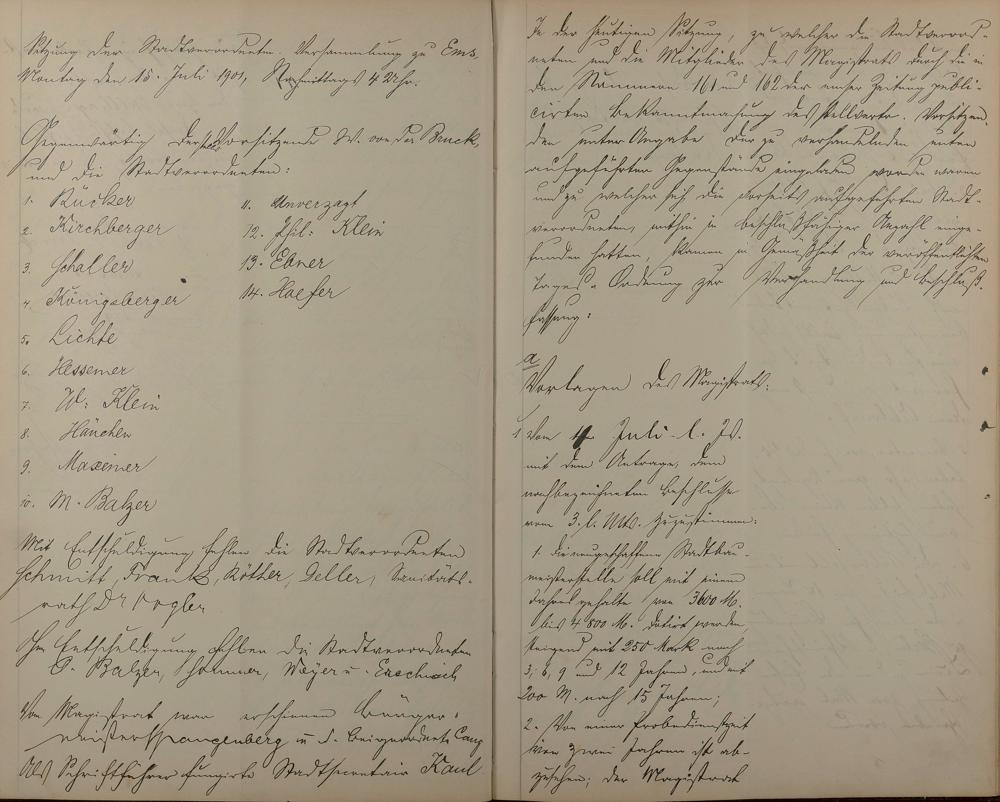 Sitzung der Stadtverordneten Versammlung zu Ems,
Montag den 15. Juli 1901, Nachmittags 4 Uhr.
Gegenwärtig der Vorsitzende W. von der Bruck
und die Stadtverordneten:
1. Rücker
2. Kirchberger
3. Schaller
4. Königsberger
5. Lichte
6. Hessemer
7. W: Klein
8. Hänchen
9. Maxeiner
10. M. Balzer
11. Unverzagt
12. Phil: Klein
13. Ebner
14. Hoefer
Mit Entschuldigung fehlen die Stadtverordneten
Schmitt, Frank, Rötter, Geller, Sanitäts-
rath Dr Vogler
Ohne Entschuldigung fehlen die Stadtverordneten
Balzer, Sommer, Weyer u.
Vom Magistrat war erschienen Bürger-
meister Spangenberg u. d. Beigeordnete Cang
Als Schriftführer fungirte Stadtsecretair Kaul
In der heutigen Sitzung, zu welcher die Stadtverord-
neten und die Mitglieder des Magistrats durch die in
den Nummern 161 und 162 der emser Zeitung publi-
cirten Bekanntmachung des stellvertr. Vorsitzen-
den unter Angabe der zu verhandelnden unten
aufgeführten Gegenstände eingeladen worden waren
und zu welcher sich die vorseits aufgeführten Stadt-
verordneten, mithin in beschlußfähiger Anzahl einge-
funden hatten, kamen in Gemäßheit der veröffentlichten
Tages-Ordnung zur Verhandlung und Beschluß-
fassung:
a
Vorlagen des Magistrats:
1 Vom 4. Juli l. Js.
mit dem Antrage, dem
nachbezeichneten Beschlusse
vom 3. l. Mts. zuzustimmen:
1. die neugeschaffene Stadtbau-
meisterstelle soll mit einem
Jahresgehalte von 3600 M.
bis 4800 M. dotirt werden,
steigend mit 250 Mark nach
3, 6, 9 und 12 Jahren, und mit
200 M. nach 15 Jahren;
2. Von einer Probedienstzeit
von zwei Jahren ist ab-
zusehen; der Magistrat